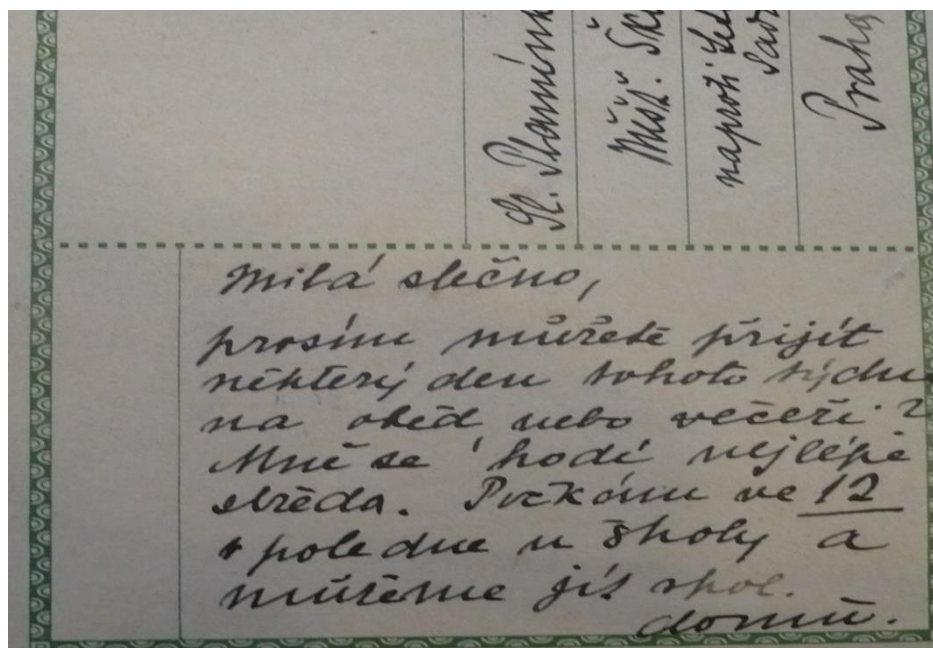 Sl. Plamínk
Měšť. Šk
naproti Let
Sad
Praha
Milá slečno,
prosím můžete přijít
některý den tohoto týdnu
na oběd nebo večeři?
Mně se hodí nejlépe
středa. Počkám ve 12
v poledne u školy a
můžeme jít spol.
domů.